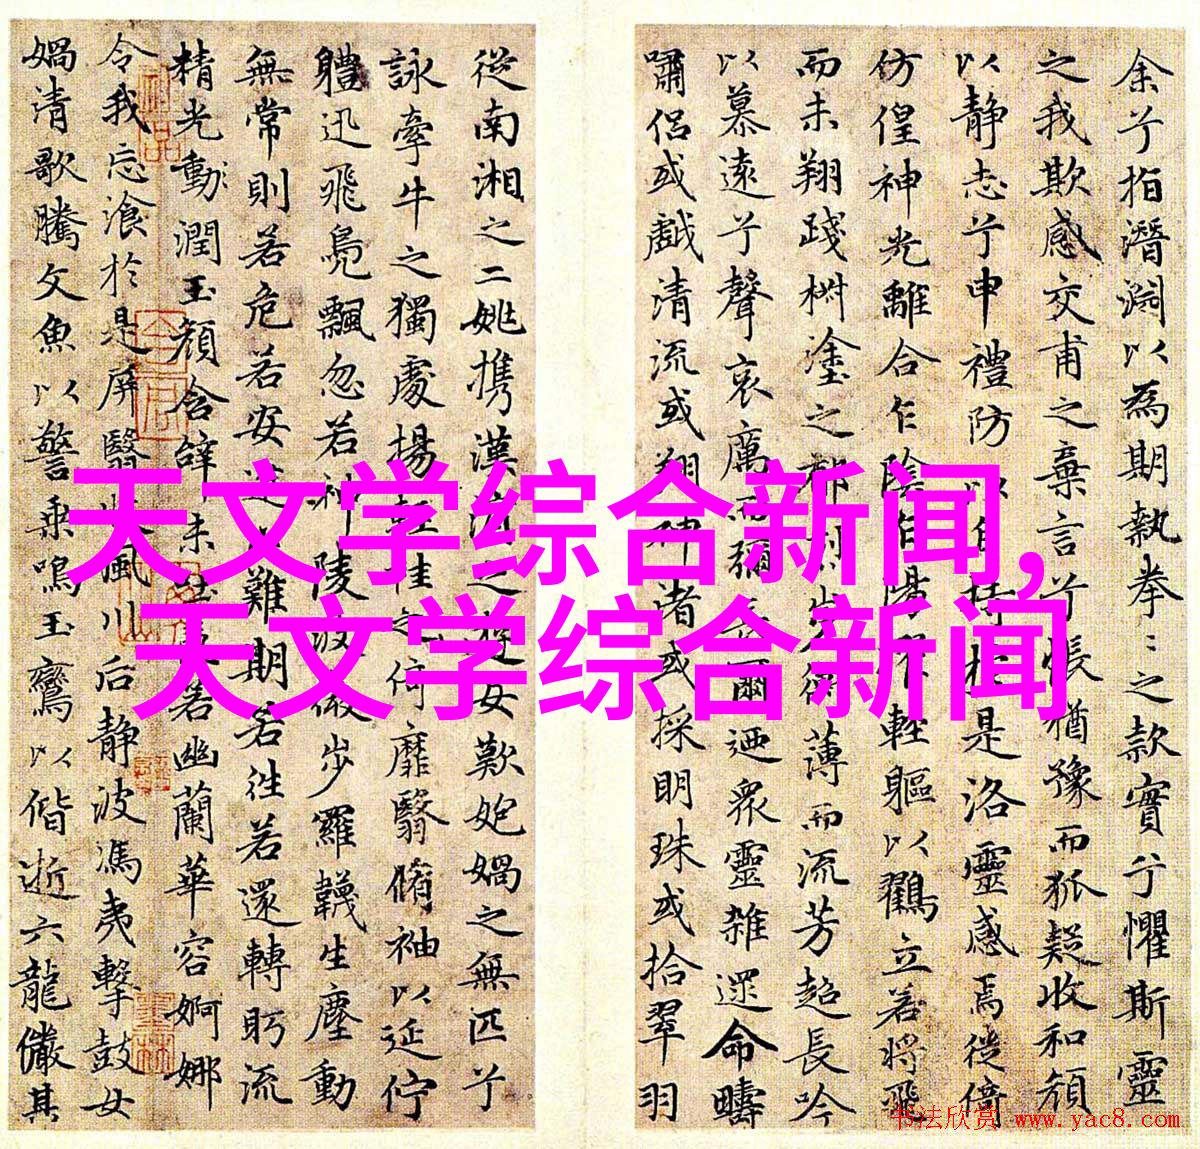 余兮指潛淵以為期執拳〻之款實兮懼斯靈
之我欺感交甫之棄言兮悵猶豫而狐疑收和顏
以静志兮申禮防以自持於是洛靈感焉徙倚
仿偟神光離合乍陰乍陽輕軀以鶴立若將飛
而未翔踐椒塗之郁烈步蘅薄而流芳超長吟
以慕遠兮聲哀厲而彌長爾迺眾靈雜遝命疇
嘯侶或戲清流或翔神渚或採明珠或拾翠羽
從南湘之二姚攜漢濱之遊女歎匏媧之無匹兮
詠牽牛之獨處揚輕袿之倚靡翳脩袖以延佇
體迅飛鳧飄忽若神陵波微步羅韈生塵動
無常則若危若安進止難期若往若還轉眄流
精光動潤玉顏含辭未吐氣若幽蘭華容婀娜
令我忘湌於是屏翳收風川后静波馮夷擊鼓女
媧清歌騰文魚以警乘鳴玉鸞以偕逝六龍儼其
天文学综合新闻,
天文学综合新闻
书法欣赏 www.yac8.com